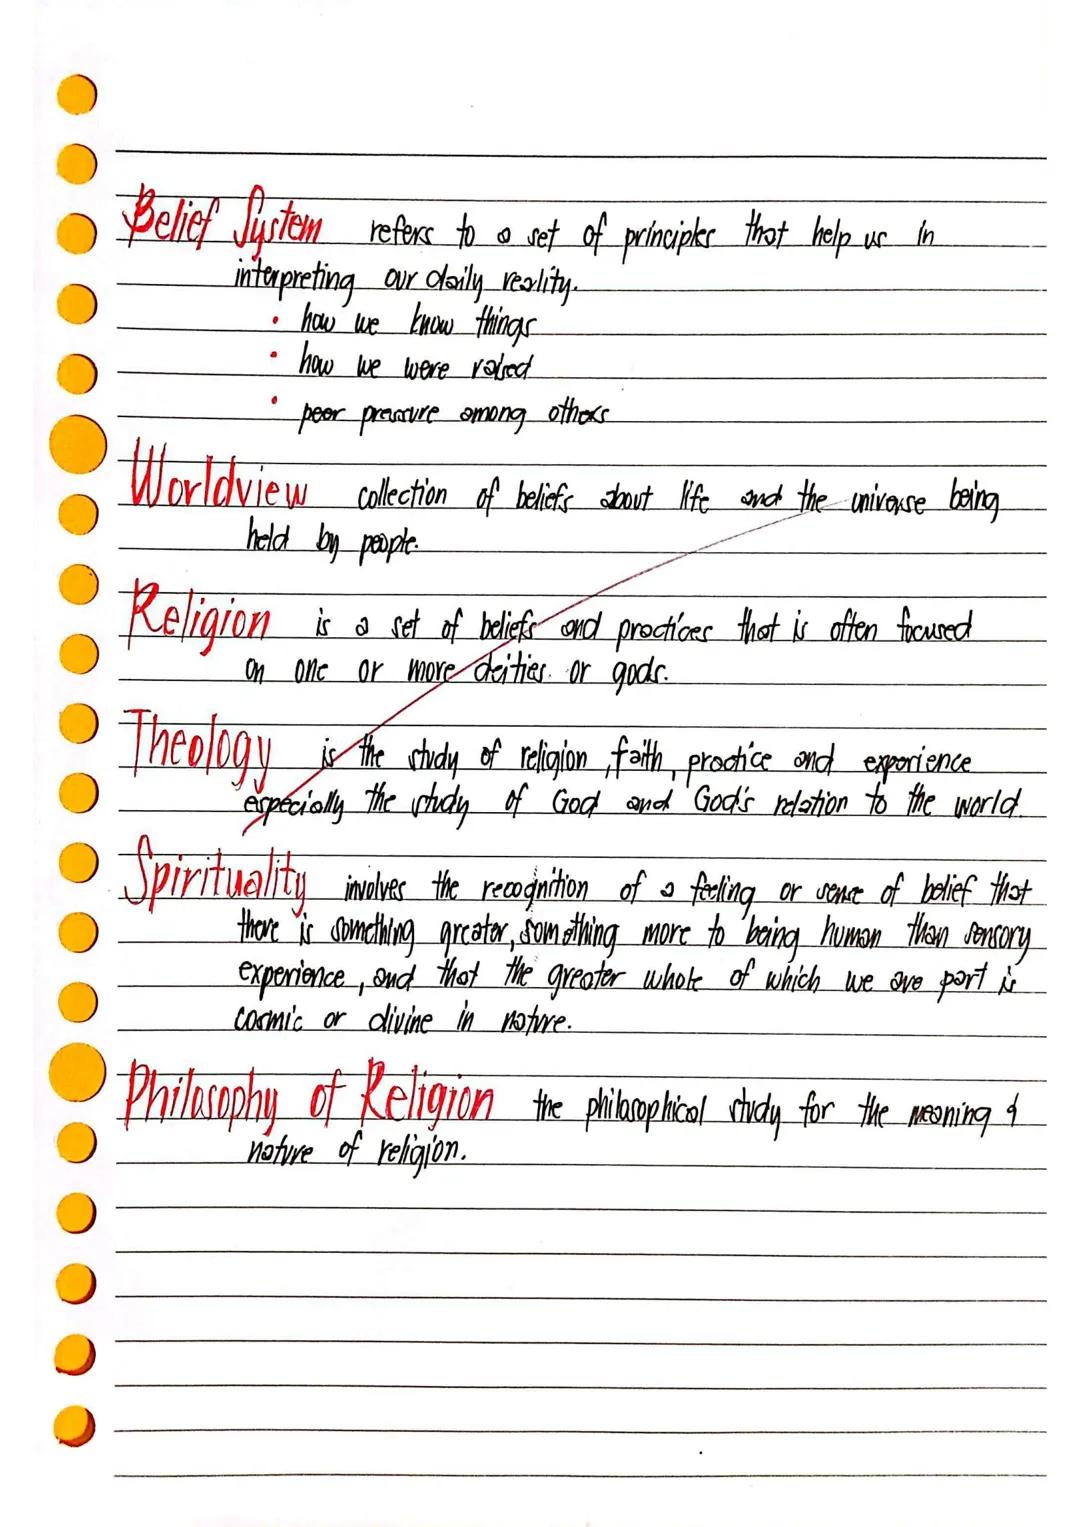 Belief System refers to a set of principles that help us in
interpreting our daily reality.
• how we know things
• how we were raised
• peer pressure among others
Worldview collection of beliefs about life and the universe being
held by people.
Religion is a set of beliefs and practices that is often focused
on one or more deities or gods.
Theology is the study of religion, faith, practice and experience
especially the study of God and God's relation to the world.
Spirituality involves the recognition of a feeling or sense of belief that
there is something greater, something more to being human than sensory
experience, and that the greater whole of which we are part is
cosmic or divine in nature.
Philosophy of Religion the philosophical study for the meaning &
nature of religion.